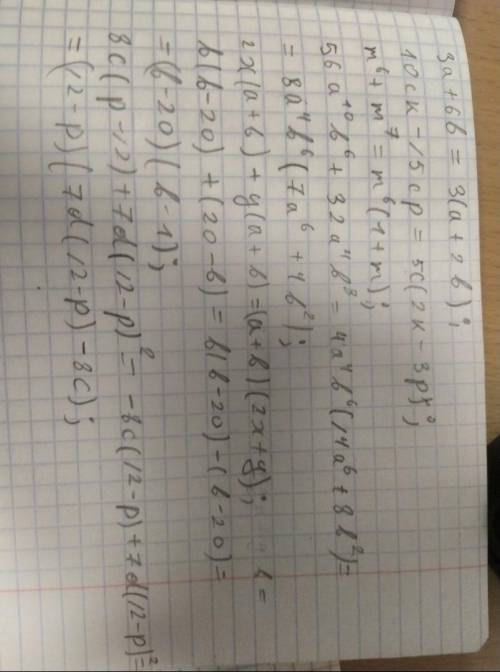 3a + 6b = 3(a + 2b);
10ck - 15cp = 5c(2k - 3p);
m⁶ + m⁷ = m⁶(1 + m);
56a¹⁰b⁶ + 32a⁴b⁸ = 4a⁴b⁶(14a⁶ + 8b²) =
= 8a⁴b⁶(7a⁶ + 4b²);
2x(a + b) + y(a + b) = (a + b)(2x + y);
b(b - 20) + (20 - b) = b(b - 20) - (b - 20) =
= (b - 20)(b - 1);
8c(p - 12) + 7d(12 - p)² = -8c(12 - p) + 7d(12 - p)² =
= (12 - p)(7d(12 - p) - 8c);